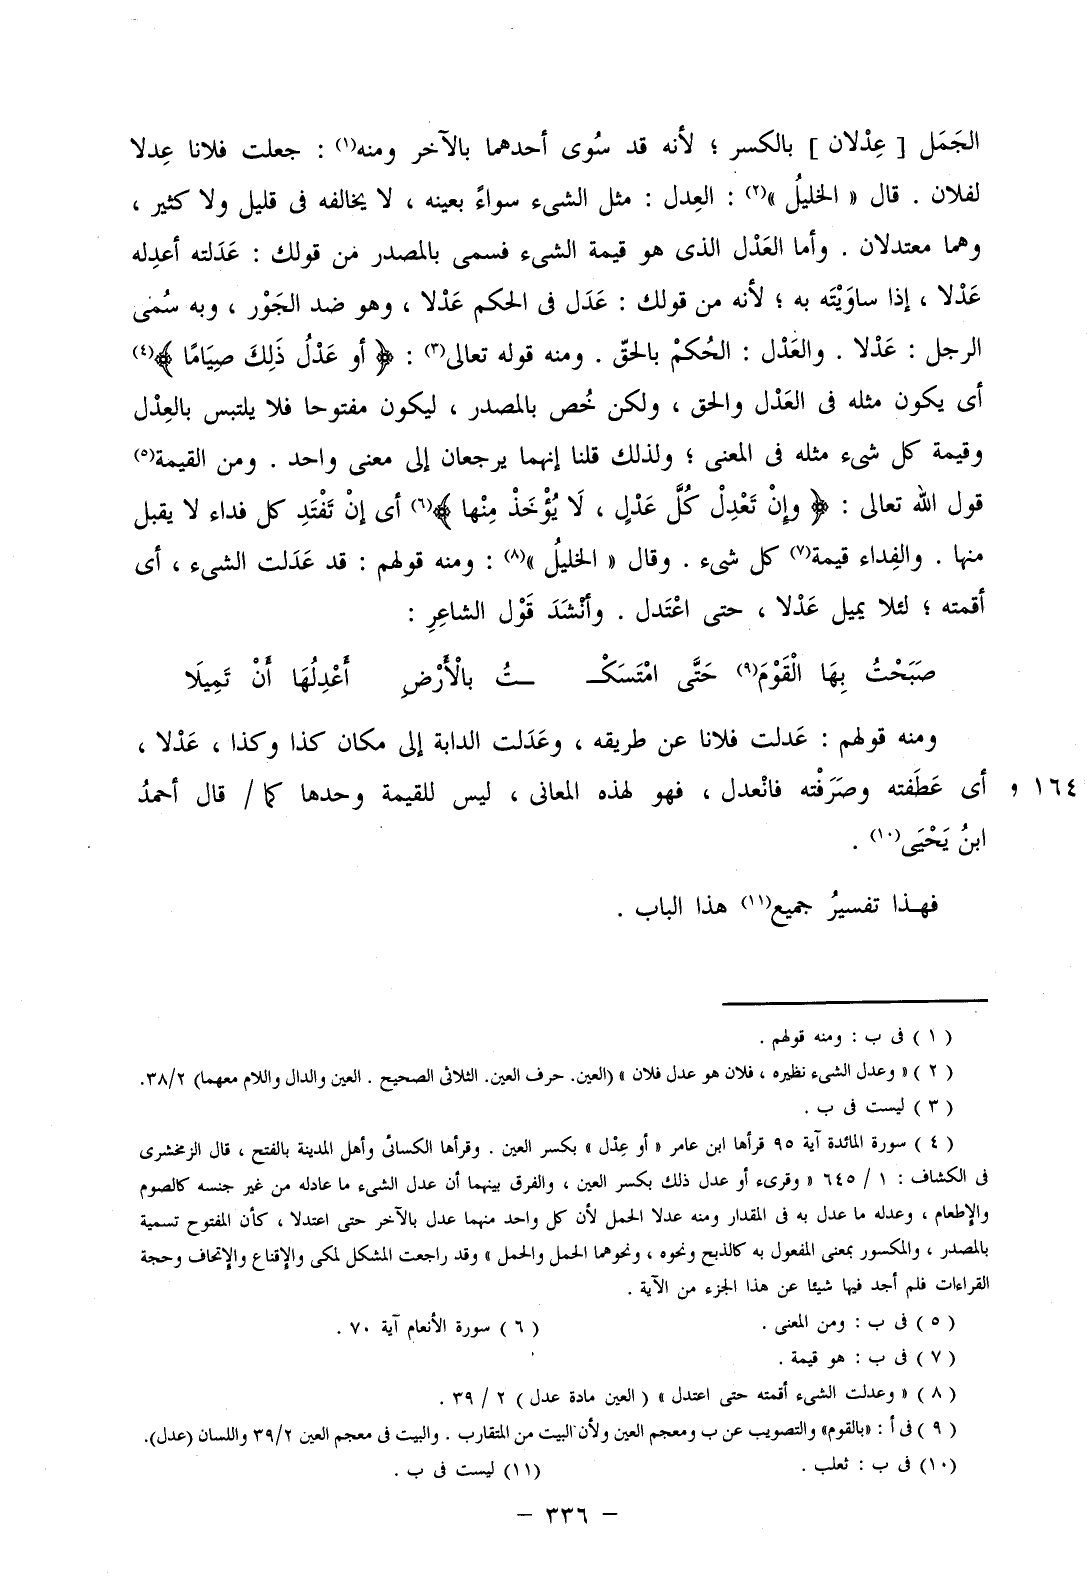 الجَمَل [ عِدْلان ] بالكسر ؛ لأنه قد سُوى أحدهما بالآخر ومنه(١) : جعلت فلانا عِدلا
لفلان . قال « الخليلُ »(٢) : العِدل : مثل الشىء سواءً بعينه ، لا يخالفه فى قليل ولا كثير ،
وهما معتدلان . وأما العَدْل الذى هو قيمة الشىء فسمى بالمصدر من قولك : عَدَلته أعدِله
عَدْلا ، إذا ساوَيْتَه به ؛ لأنه من قولك : عَدَل فى الحكم عَدْلا ، وهو ضد الجَوْر ، وبه سُمى
الرجل : عَدْلا . والعَدْل : الحُكمْ بالحقّ . ومنه قوله تعالى(٣) : ﴿ أو عَدْلُ ذَلِكَ صِيَامًا ﴾(٤)
أى يكون مثله فى العَدْل والحق ، ولكن خُص بالمصدر ، ليكون مفتوحا فلا يلتبس بالعِدْل
وقيمة كل شىء مثله فى المعنى ؛ ولذلك قلنا إنهما يرجعان إلى معنى واحد . ومن القيمة(٥)
قول الله تعالى : ﴿ وإنْ تَعْدِلْ كُلَّ عَدْلٍ ، لَا يُؤْخَذْ مِنْها ﴾(٦) أى إنْ تَفْتَدِ كل فداء لا يقبل
منها . والفِداء قيمة(٧) كل شىء . وقال « الخليلُ »(٨) : ومنه قولهم : قد عَدَلت الشىء ، أى
أقمته ؛ لئلا يميل عَدْلا ، حتى اعْتَدل . وأنْشَدَ قَوْل الشاعِرِ :
صَبَحْتُ بِهَا الْقَوْمَ(٩) حَتَّى امْتَسَكْـ ـتُ بالْأَرْضِ أَعْدِلُهَا أَنْ تَمِيلَا
ومنه قولهم : عَدلت فلانا عن طريقه ، وعَدَلت الدابة إلى مكان كذا وكذا ، عَدْلا ،
١٦٤ و أى عَطَفته وصَرَفْته فانْعدل ، فهو لهذه المعانى ، ليس للقيمة وحدها كما / قال أحمدُ
ابنُ يَحْيَى(١٠) .
فهـذا تفسيرُ جميع(١١) هذا الباب .
( ١ ) فى ب : ومنه قولهم .
( ٢ ) « وعدل الشىء نظيره ، فلان هو عدل فلان » (العين. حرف العين. الثلاثى الصحيح . العين والدال واللام معهما) ٣٨/٢.
( ٣ ) ليست فى ب .
( ٤ ) سورة المائدة آية ٩٥ قرأها ابن عامر « أو عِدْل » بكسر العين . وقرأها الكسائى وأهل المدينة بالفتح ، قال الزمخشرى
فى الكشاف : ١ / ٦٤٥ « وقرىء أو عدل ذلك بكسر العين ، والفرق بينهما أن عدل الشىء ما عادله من غير جنسه كالصوم
والإطعام ، وعدله ما عدل به فى المقدار ومنه عدلا الحمل لأن كل واحد منهما عدل بالآخر حتى اعتدلا ، كأن المفتوح تسمية
بالمصدر ، والمكسور بمعنى المفعول به كالذبح ونحوه ، ونحوهما الحمل والحمل » وقد راجعت المشكل لمكى والإقناع والإتحاف وحجة
القراءات فلم أجد فيها شيئا عن هذا الجزء من الآية .
( ٥ ) فى ب : ومن المعنى . ( ٦ ) سورة الأنعام آية ٧٠ .
( ٧ ) فى ب : هو قيمة .
( ٨ ) « وعدلت الشىء أقمته حتى اعتدل » ( العين مادة عدل ) ٢ / ٣٩ .
( ٩ ) فى أ : «بالقوم» والتصويب عن ب ومعجم العين ولأن البيت من المتقارب . والبيت فى معجم العين ٣٩/٢ واللسان (عدل).
(١٠) فى ب : ثعلب . (١١) ليست فى ب .
– ٣٣٦ –